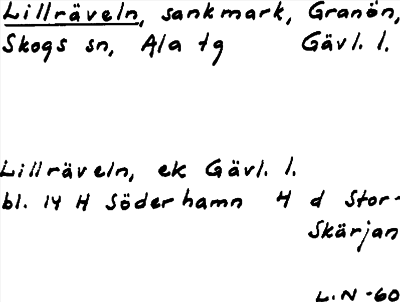 Lillräveln, sankmark, Granön,
Skogs sn, Ala tg Gävl. l.
Lillräveln, ek Gävl. l.
bl. 14 H Söderhamn 4 d Stor-
Skärjan
L.N -60